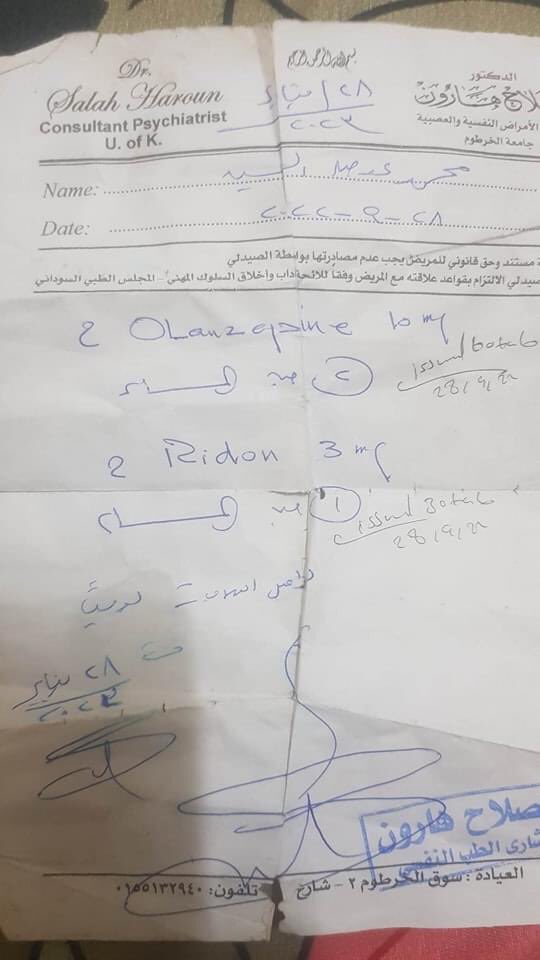 Dr.
Salah Haroun
Consultant Psychiatrist
U. of K.
بسم الله الرحمن الرحيم
الدكتور
هارون
الأمراض النفسية والعصبية
جامعة الخرطوم
٢٨ / يناير
٢٠٢٣
Name:
Date: ٢٨-٩-٢٠٢٢
مستند وحق قانوني للمريض يجب عدم مصادرتها بواسطة الصيدلي
الالتزام بقواعد علاقته مع المريض وفقاً للائحة آداب وأخلاق السلوك المهني - المجلس الطبي السوداني
2 Olanzapine 10 mg
٢ حبة المساء
issued 60tab
28/9/22
2 Ridon 3 mg
١ حبة المساء
issued 30tab
28/9/22
٢٨ يناير
٢٠٢٣
صلاح هارون
الطب النفسي
العيادة : سوق الخرطوم ٢ - شارع
تلفون: ٠١٥٥١٣٢٩٤٠